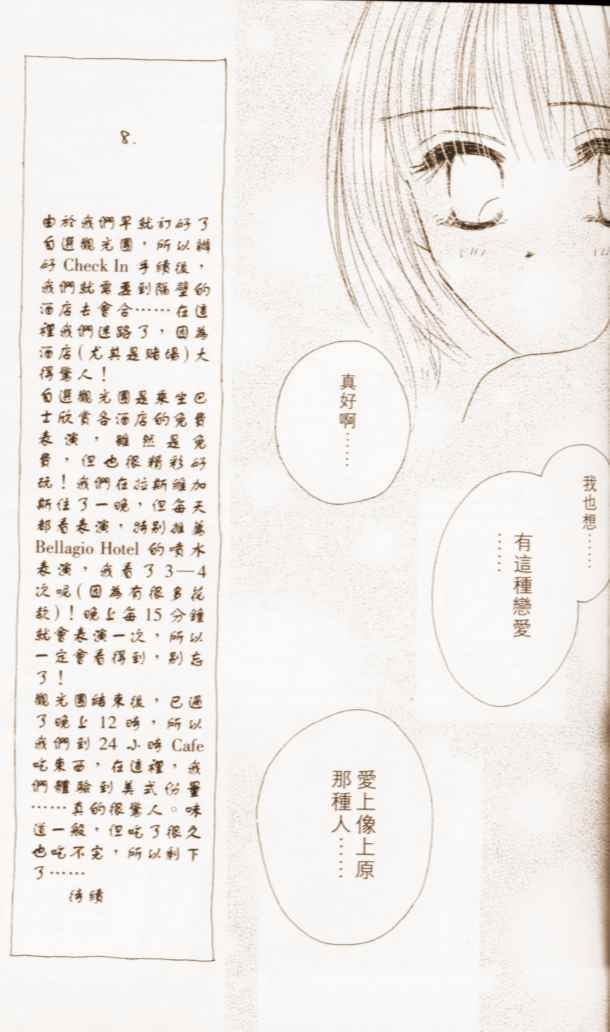 真好啊……
我也想……
有這種戀愛
……
愛上像上原
那種人……
8.
由於我們早就訂好了
自選觀光團，所以辦
好 Check In 手續後，
我們就需要到隔壁的
酒店去會合……在這
裡我們迷路了，因為
酒店(尤其是賭場)大
得驚人！
自選觀光團是乘坐巴
士欣賞各酒店的免費
表演，雖然是免
費，但也很精彩好
玩！我們在拉斯維加
斯住了一晚，但每天
都看表演，特別推薦
Bellagio Hotel 的噴水
表演，我看了 3—4
次呢(因為有很多花
款)！晚上每 15 分鐘
就會表演一次，所以
一定會看得到，別忘
了！
觀光團結束後，已過
了晚上 12 時，所以
我們到 24 小時 Cafe
吃東西，在這裡，我
們體驗到美式份量
……真的很驚人。味
道一般，但吃了很久
也吃不完，所以剩下
了……
待續